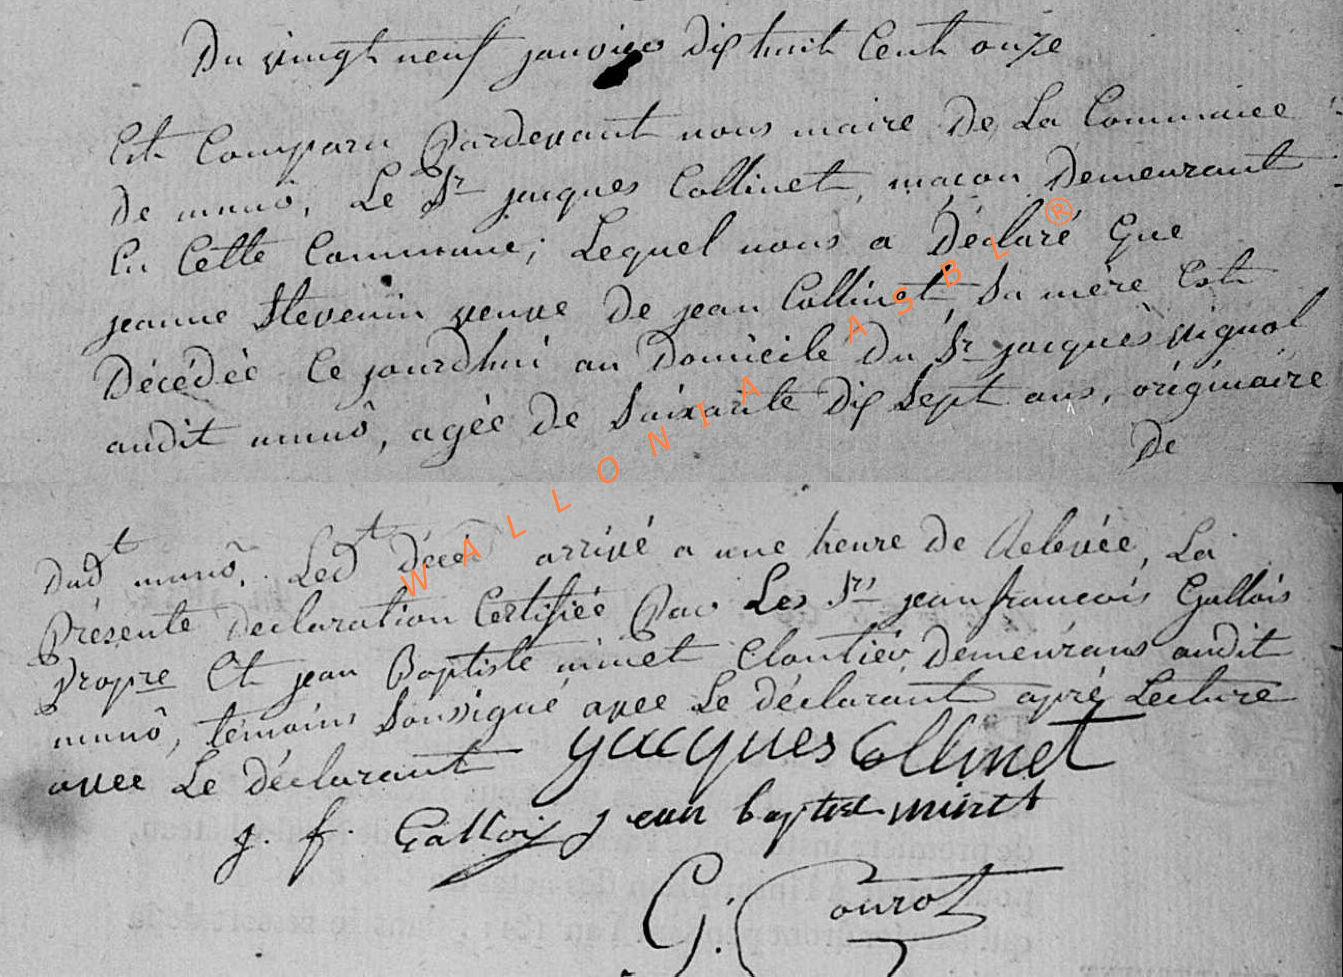 Du vingt neuf janvier dix huit Cent onze
Est Comparu Pardevant nous maire De La Commune
de muno, Le Sr jacques Collinet, macon Demeurant
En Cette Commune; Lequel nous a Déclaré Que
jeanne Stevenin veuve De jean Collinet Sa mère Est
Décédée Ce jourdhui au Domicile Du Sr jacques vignol
audit munô, agée De Soixante Dix Sept ans, originaire
De
Dudt munô. Ledt décé arrivé a une heure De Relevée, La
Présente Declaration Certifiée Par Les Srs jean francois Gallois
Propre Et jean Baptiste minet Cloutier, Demeurans audit
munô, témoins Soussigné avec Le déclarant apré Lecture
avec Le déclarant jacques Collinet
j. f. Galloij jean baptiste minet
G. Gourot
WALLONIA ASBL ®